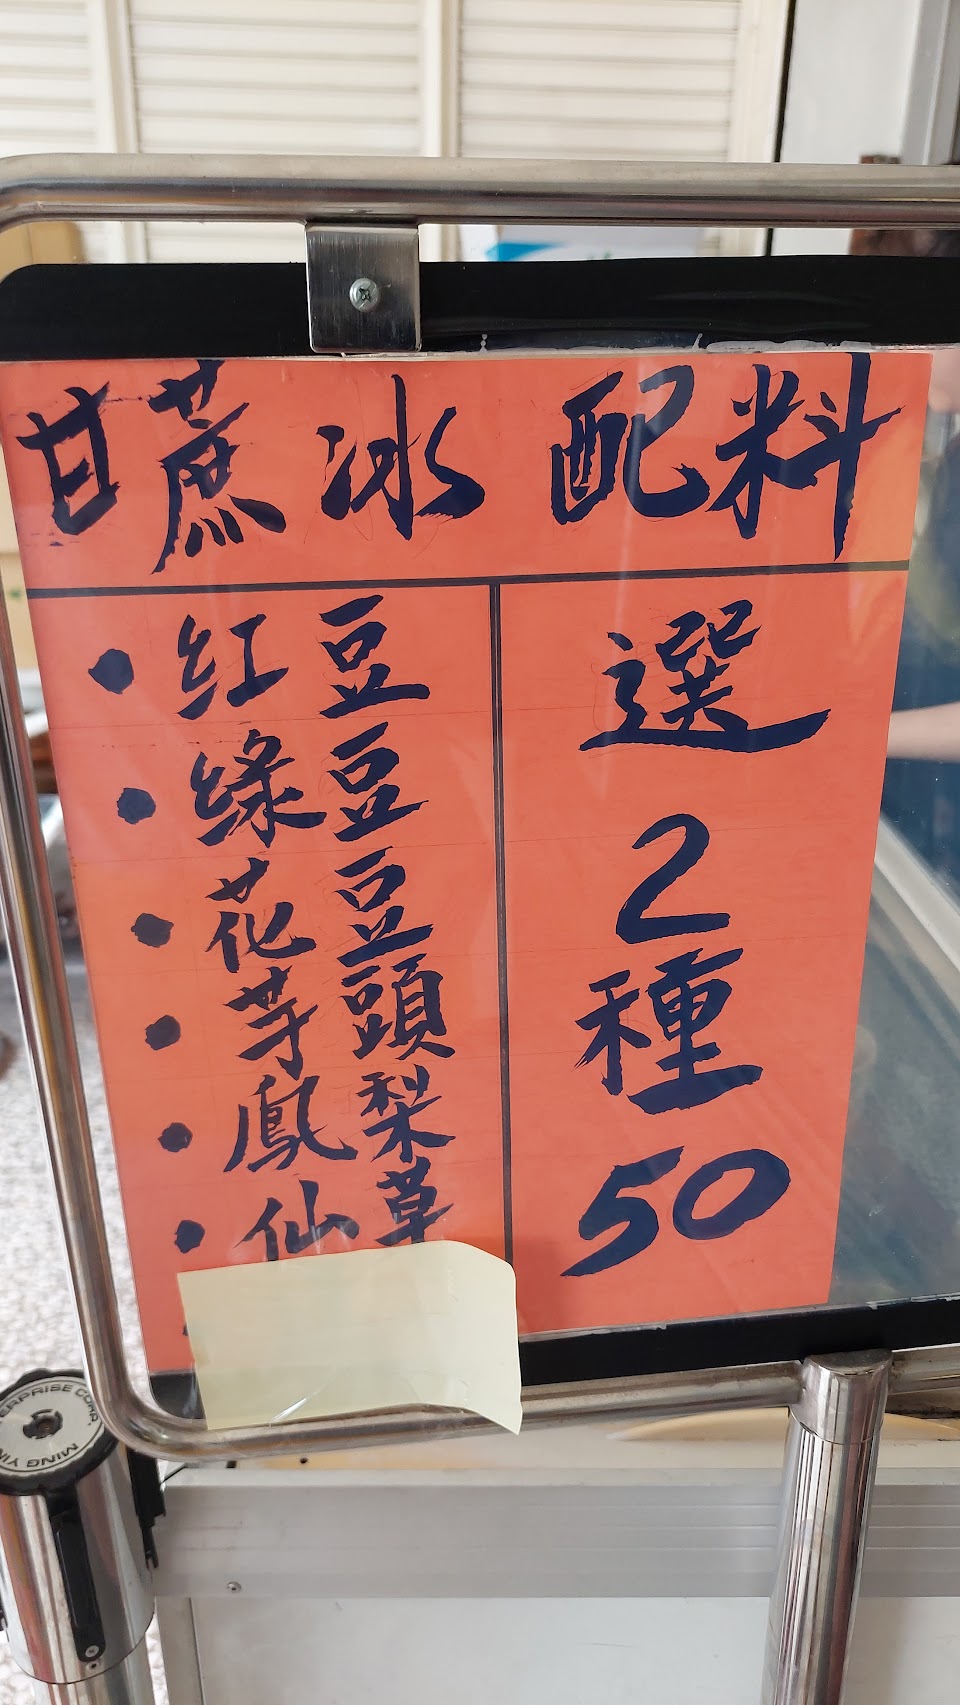 甘蔗冰 配料
• 紅豆
• 綠豆
• 花豆
• 芋頭
• 鳳梨
• 仙草
選
2
種
50
ERPRISE CORP.
MING YIN